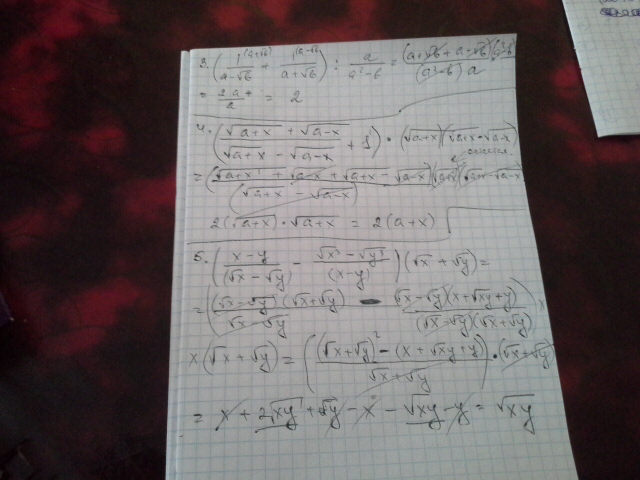 3. (1^(a+√b)/(a-√b) + 1^(a-√b)/(a+√b)) : a/(a²-b) = (a+√b + a-√b)(a²-b)/((a²-b) a)
= 2a/a = 2
4. ((√(a+x) + √(a-x))/(√(a+x) - √(a-x)) + 1) · (√(a+x))(√(a+x) - √(a-x))
= (√(a+x) + √(a-x) + √(a+x) - √(a-x))(√(a+x))(√(a+x) - √(a-x))/(√(a+x) - √(a-x))
2(√(a+x)) · √(a+x) = 2(a+x)
5. ((x-y)/(√x - √y) - (√x³ - √y³)/(x-y))(√x + √y) =
= ((√x-√y)(√x+√y)/(√x-√y) - (√x-√y)(x+√xy+y)/((√x-√y)(√x+√y))) ×
× (√x + √y) = (((√x+√y)² - (x+√xy+y))/(√x+√y)) · (√x+√y)
= x + 2√xy + √y - x - √xy - y = √xy